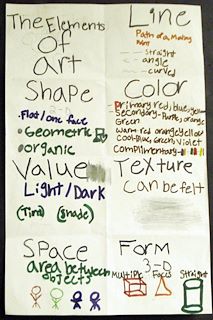 The Elements
Of
art
Line
Path of a Moving
Point
straight
angle
curved
Shape
2-D
Flat/one face
Geometric
organic
Color
Primary red, blue, yellow
Secondary-Purple, orange
Green
Warm-red orange yellow
Cool-Blue, Green, Violet
Complimentary-
Value
Light/Dark
(Tint) (shade)
Texture
Can be felt
Space
area between
objects
Form
3-D
Multiple Faces Straight